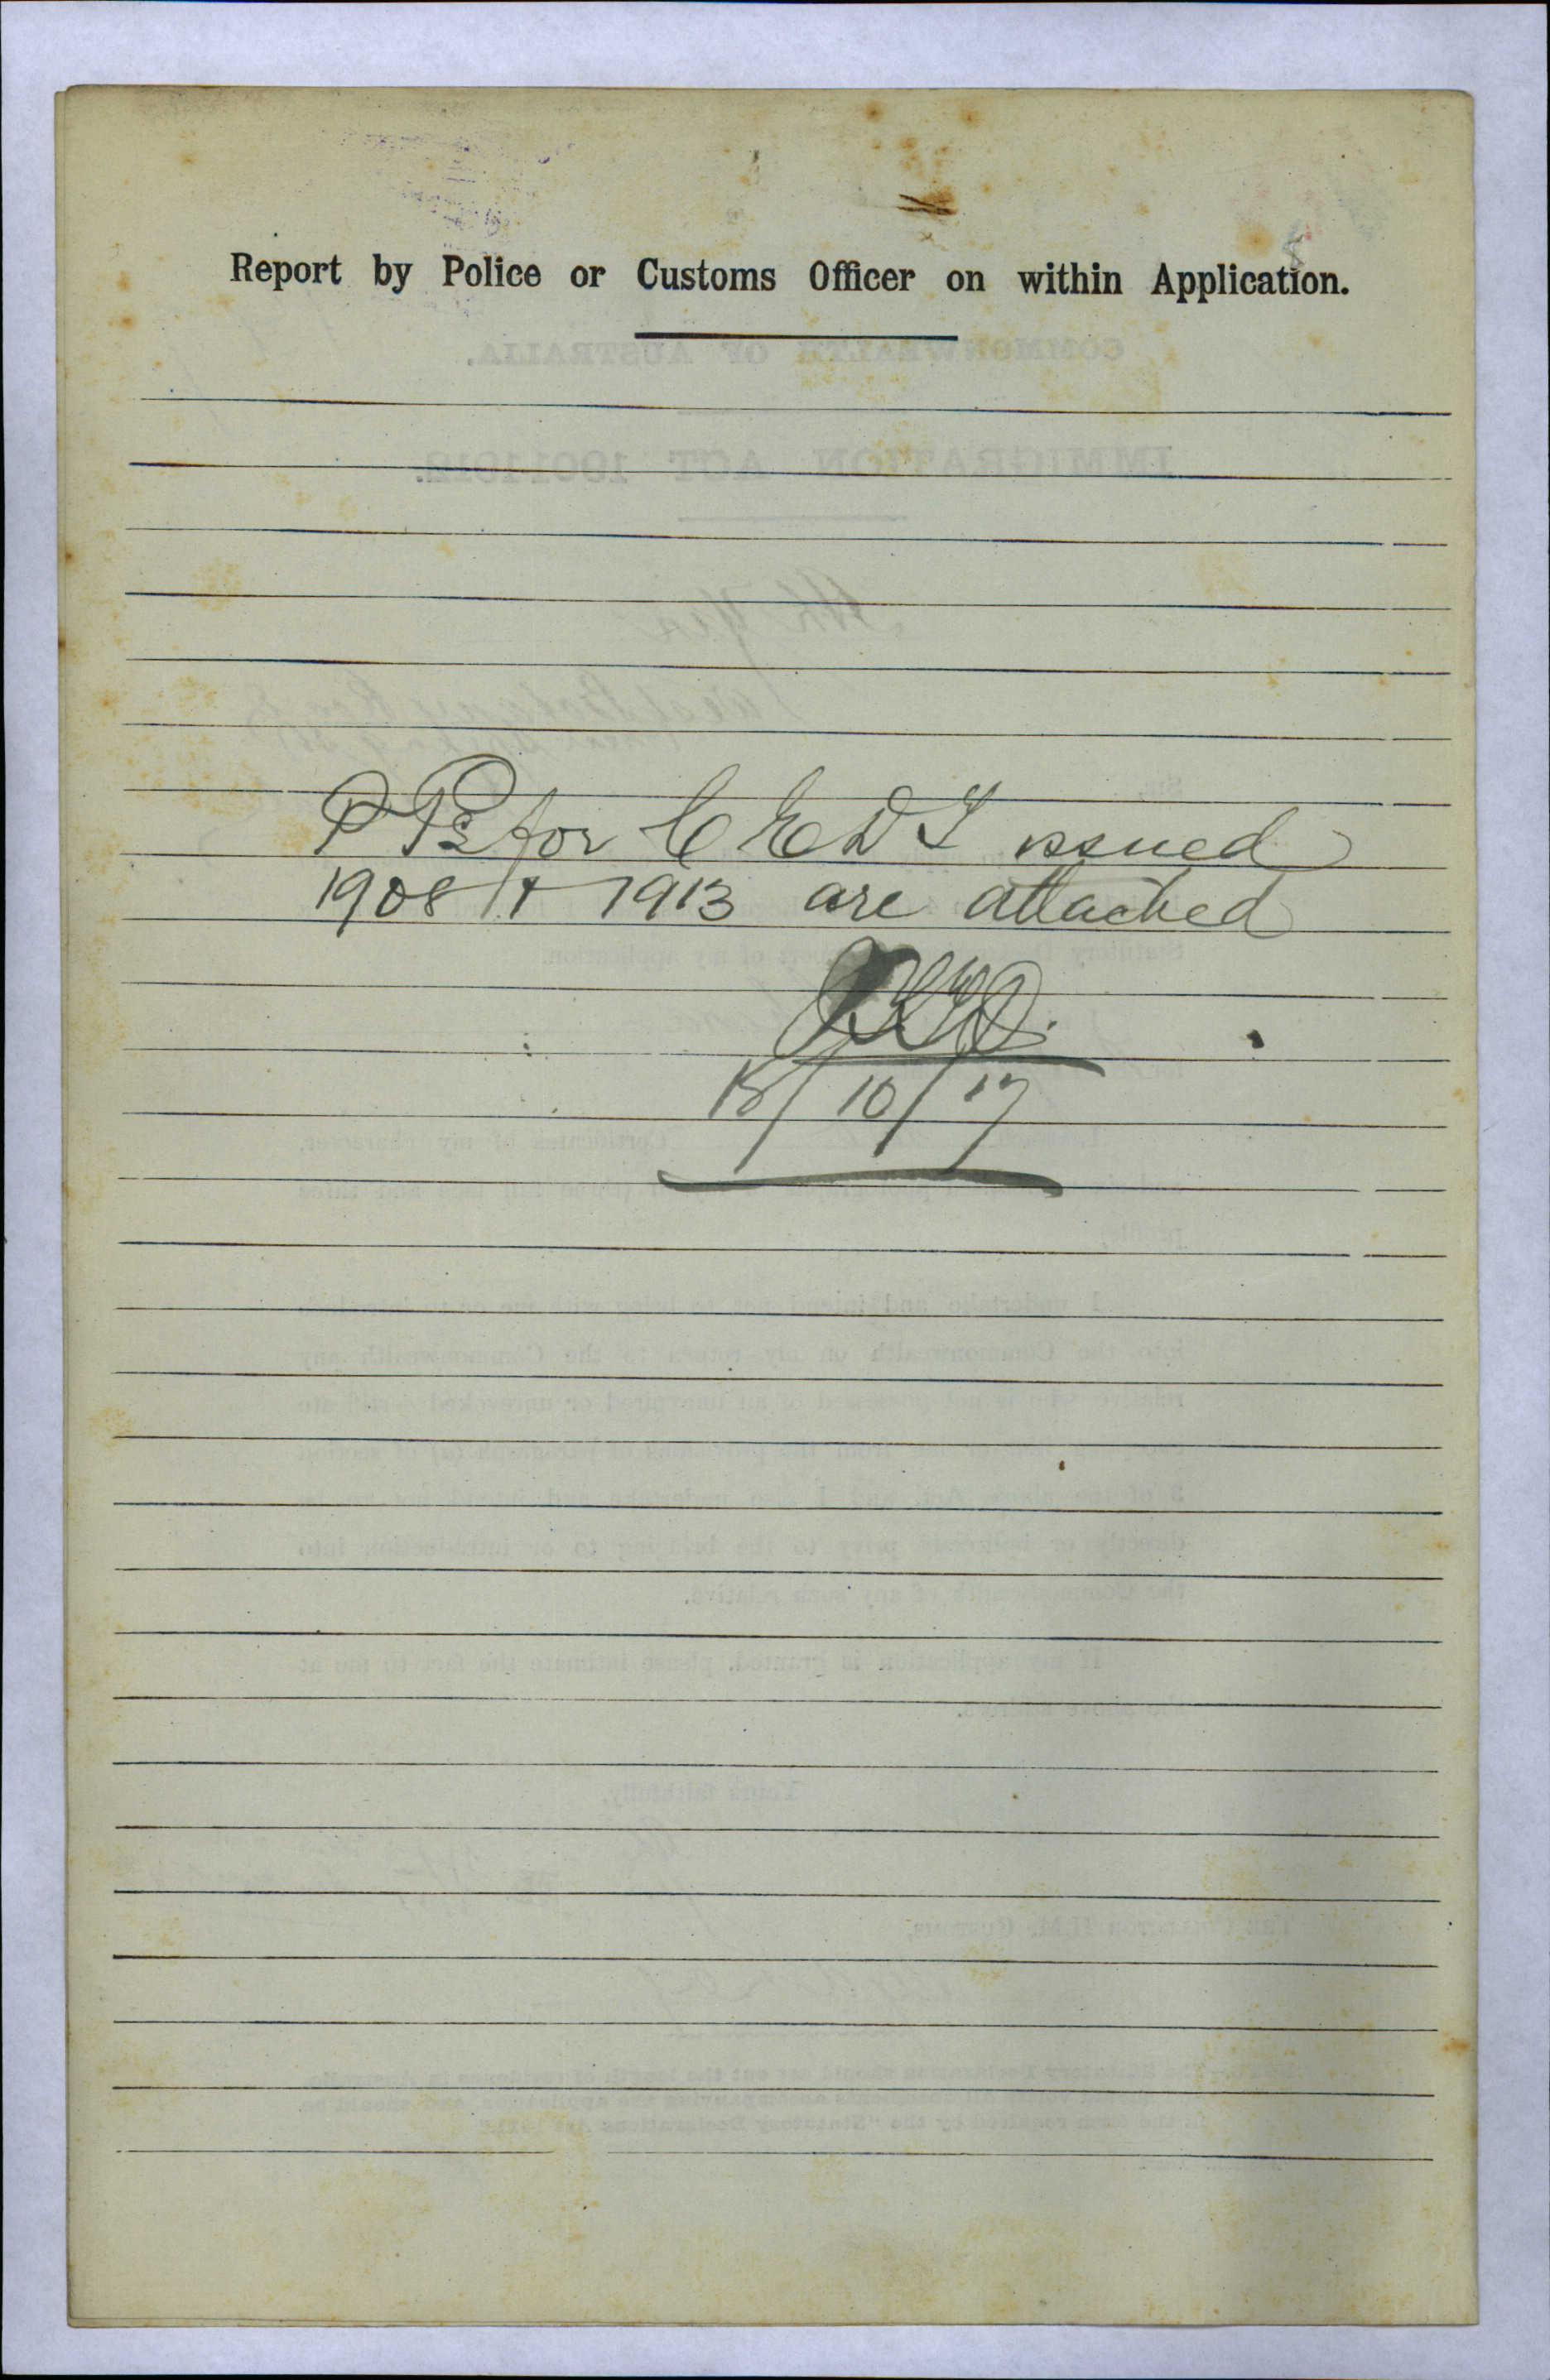 Report by Police or Customs Officer on within Application.
P Ps for C E D T issued
1908 & 1913 are attached
/10/17